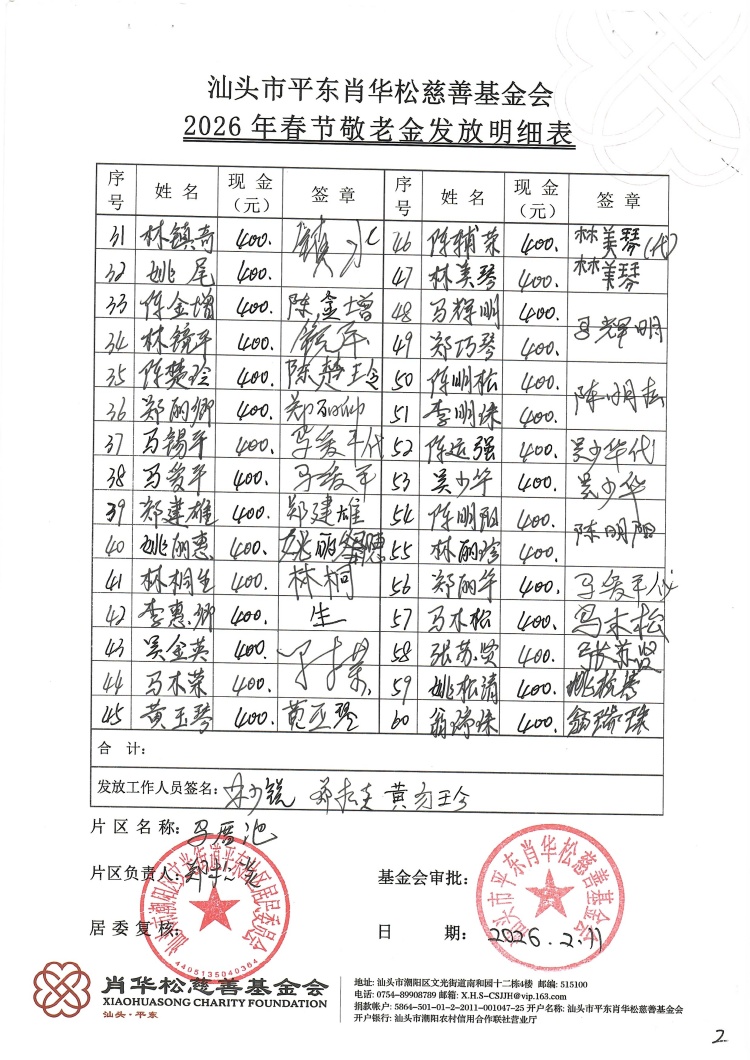 汕头市平东肖华松慈善基金会
2026年春节敬老金发放明细表
序号 姓名 现金（元） 签章 序号 姓名 现金（元） 签章
31 林镇奇 400. 46 陈辅荣 400. 林美琴(代)
32 姚尾 400. 47 林美琴 400. 林美琴
33 陈金增 400. 陈金增 48 马辉明 400. 马辉明
34 林镜平 400. 镜平 49 郑巧琴 400.
35 陈楚玲 400. 陈楚玲 50 陈明松 400. 陈明松
36 郑丽卿 400. 郑丽卿 51 李明珠 400.
37 马锡平 400. 马爱平代 52 陈运强 400. 吴少华代
38 马爱平 400. 马爱平 53 吴少华 400. 吴少华
39 郑建雄 400. 郑建雄 54 陈明阳 400. 陈明阳
40 姚丽惠 400. 姚丽惠 55 林丽珍 400.
41 林桐生 400. 林桐 56 郑丽华 400. 马爱平代
42 李惠卿 400. 生 57 马木松 400. 马木松
43 吴金英 400. 58 张苏贤 400. 张苏贤
44 马木荣 400. 59 姚松清 400.
45 黄玉琴 400. 黄玉琴 60 翁瑞珠 400. 翁瑞珠
合 计：
发放工作人员签名：
片区名称：
片区负责人：
基金会审批：
居委复核：
日 期：2026.2.11
4405135040364
汕头市平东肖华松慈善基金会
肖华松慈善基金会
XIAOHUASONG CHARITY FOUNDATION
汕头·平东
地址: 汕头市潮阳区文光街道南和园十二栋4楼 邮编: 515100
电话: 0754-89908789 邮箱: X.H.S-CSJJH@vip.163.com
捐款帐户: 5864-501-01-2-2011-001047-25 开户名称: 汕头市平东肖华松慈善基金会
开户银行: 汕头市潮阳农村信用合作联社营业厅
2